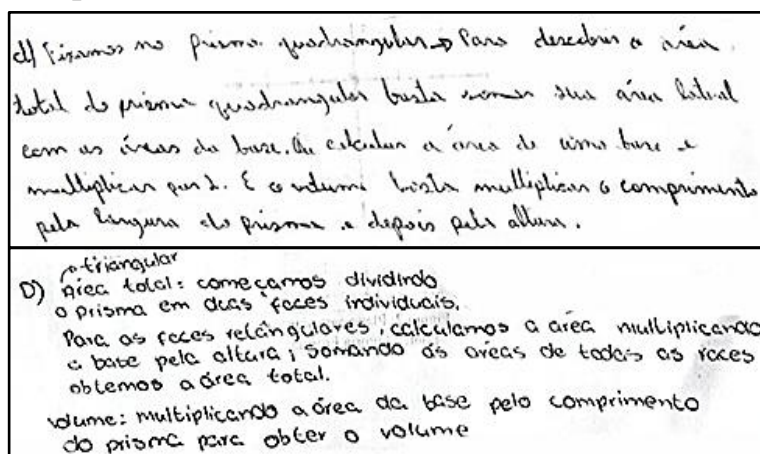 d) Fixamos no prisma quadrangular → Para descobrir a área
total do prisma quadrangular basta somar sua área lateral
com as áreas da base. Ou calcular a área de uma base e
multiplicar por 2. E o volume basta multiplicar o comprimento
pela largura do prisma e depois pela altura.
→triangular
D) Área total: começamos dividindo
o prisma em duas faces individuais.
Para as faces retângulares, calculamos a area multiplicando
a base pela altura; Somando as areas de todas as faces
obtemos a área total.
volume: multiplicando a área da base pelo comprimento
do prisma para obter o volume